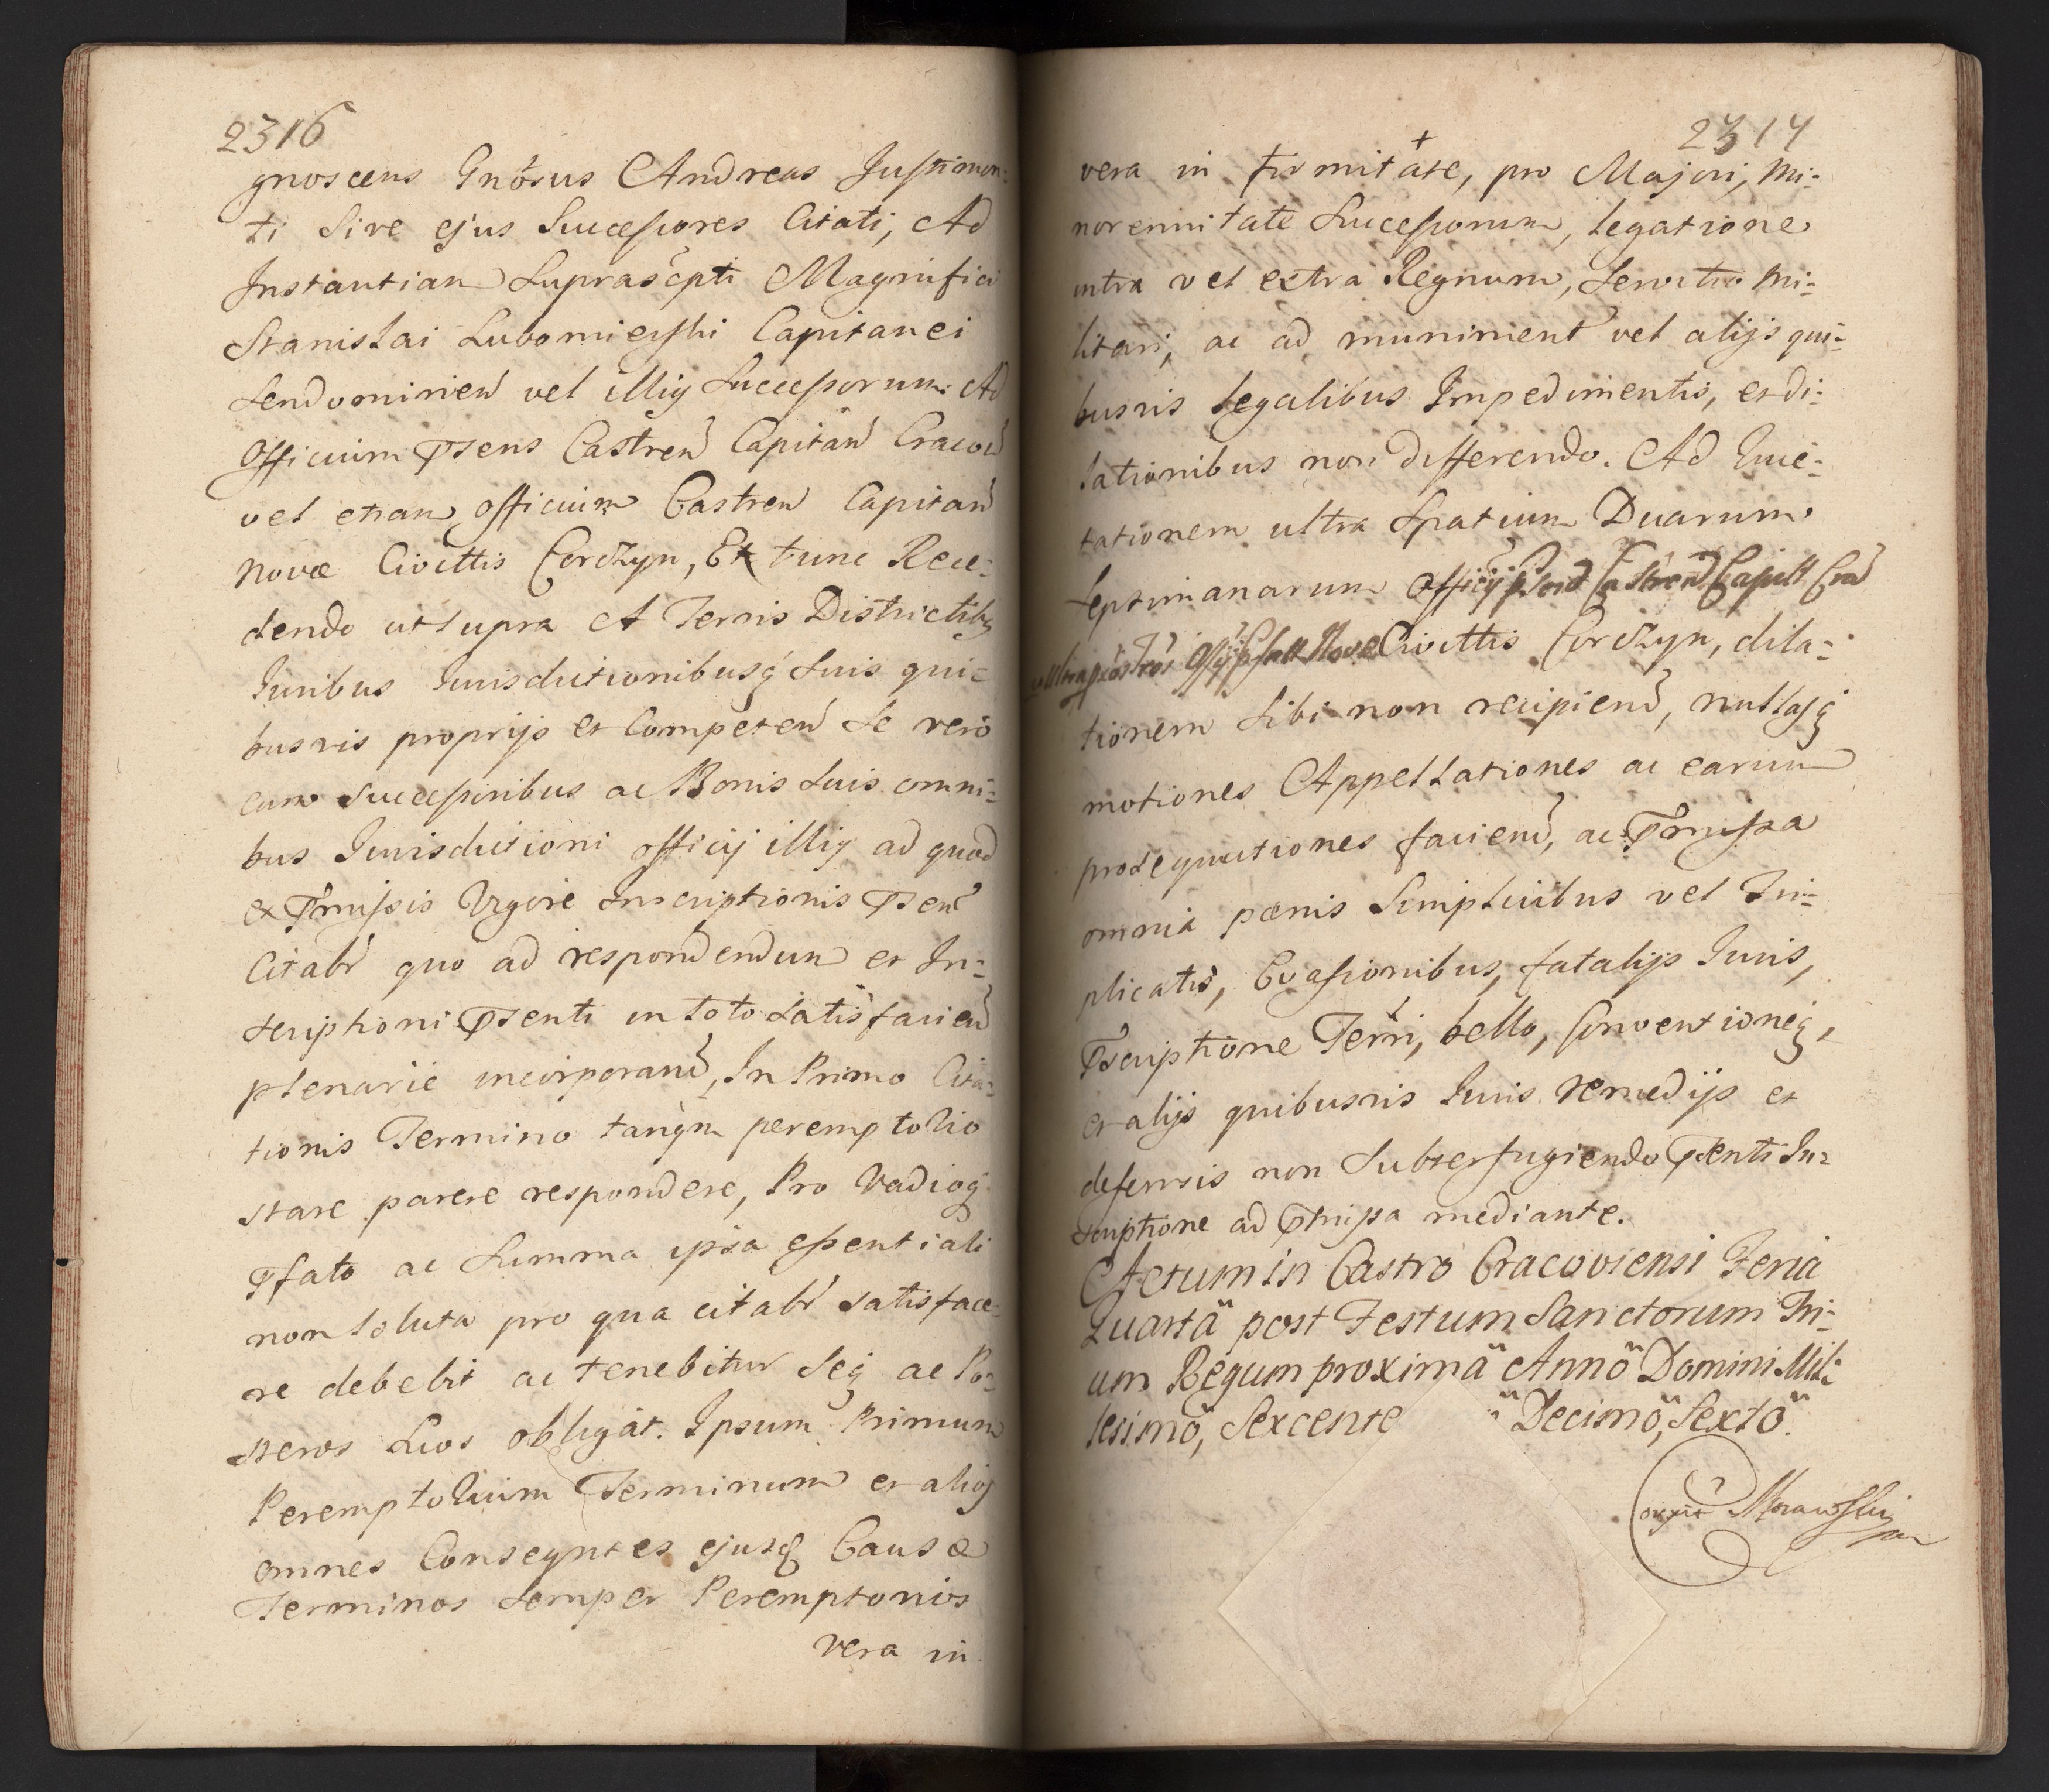 2316
gnoscens Gnosus Andreas Justimon-
ti sive ejus Successores Citati, Ad
Instantiam Suprascpti Magnifici
Stanislai Lubomierski Capitanei
Sendomirien vel illig Successorum Ad
Officium Psens Castren Capitan Cracou
vel etiam officium Castren Capitan
Novæ Civittis Corczyn, Et tunc Rece-
dendo ut supra A Terris Districtibg
Juribus Jurisdictionibusq Suis qui-
busvis proprijs et Competen Se vero
cum successoribus ac Bonis Suis omni-
bus Jurisdictioni officij illig ad quod
ex Pmissis Vigore Inscriptionis Psen
Citabr quo ad respondendum et In-
scriptioni Psenti in toto Satisfacien
plenarie incorporand, In Primo Cita-
tionis Termino tanqm peremptolio
stare parere respondere, Pro Vadioq
Pfato ac Summa ipsa essentiali
non soluta pro qua citabr satisface-
re debebit ac tenebitur Seq ac Po-
steros Suos obligat. Ipsum Primum
Peremptolium Terminum et aliog
omnes Conseqntes ejusd Causæ
Terminos semper Peremptorios
vera in
2317
vera in firmitate, pro Majori, Mi-
norennitate Successorum, legatione
intra vel extra Regnum, Servitio Mi-
litari, ac ad muniment vel alijs qui-
busvis legalibus Impedimentis, et di-
lationibus non differendo. Ad Evic-
tationem ultra Spatium Duarum
septimanarum Officij Psend Castren Capitt Cra
Civittis Corczyn, dila-
tionem sibi non recipiend, nullasq
motiones Appellationes ac earum
prosequutiones faciend, ac Pmissa
omnia pœnis Simplicibus vel Tri-
plicatis, Evasionibus, fatalijs Juris,
Pscriptione Terri, bello, Conventioneq,
et alijs quibusvis Juris remedijs et
defensis non Subterfugiendo Psenti In-
scriptione ad Pmissa mediante.
Actum in Castro Cracoviensi Feria
Quarta post Festum Sanctorum Tri-
um Regum proxima Anno Domini Mil-
lesimo, Sexcente Decimo, Sexto.
Morawski